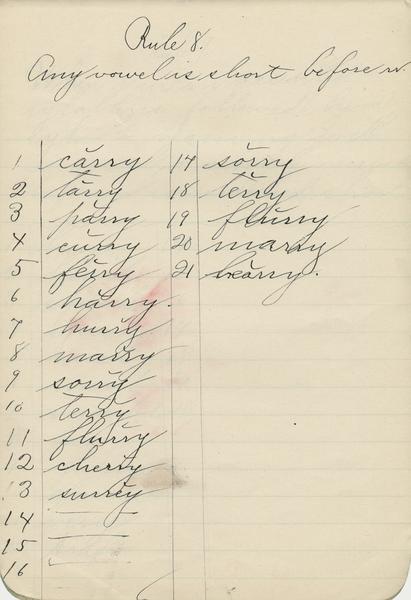 Rule 8.
Any vowel is short before rr.
1 cărry
2 tărry
3 părry
4 cŭrry
5 fĕrry
6 hărry.
7 hŭrry
8 mărry
9 sŏrry
10 tĕrry
11 flŭrry
12 chĕrry
13 surrey
14
15
16
17 sŏrry
18 tĕrry
19 flŭrry
20 marry
21